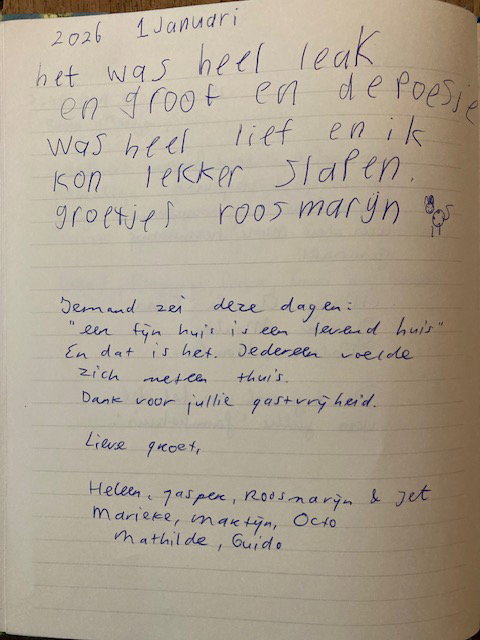 2026 1 Januari
het was heel leak
en groot en de Poesje
was heel lief en ik
kon lekker slapen.
groetjes roosmarijn
Iemand zei deze dagen:
"een fijn huis is een levend huis"
En dat is het. Iedereen voelde
zich meteen thuis.
Dank voor jullie gastvrijheid.
Lieve groet,
Heleen, Jasper, Roosmarijn & Jet
Marieke, Martijn, Octo
Mathilde, Guido